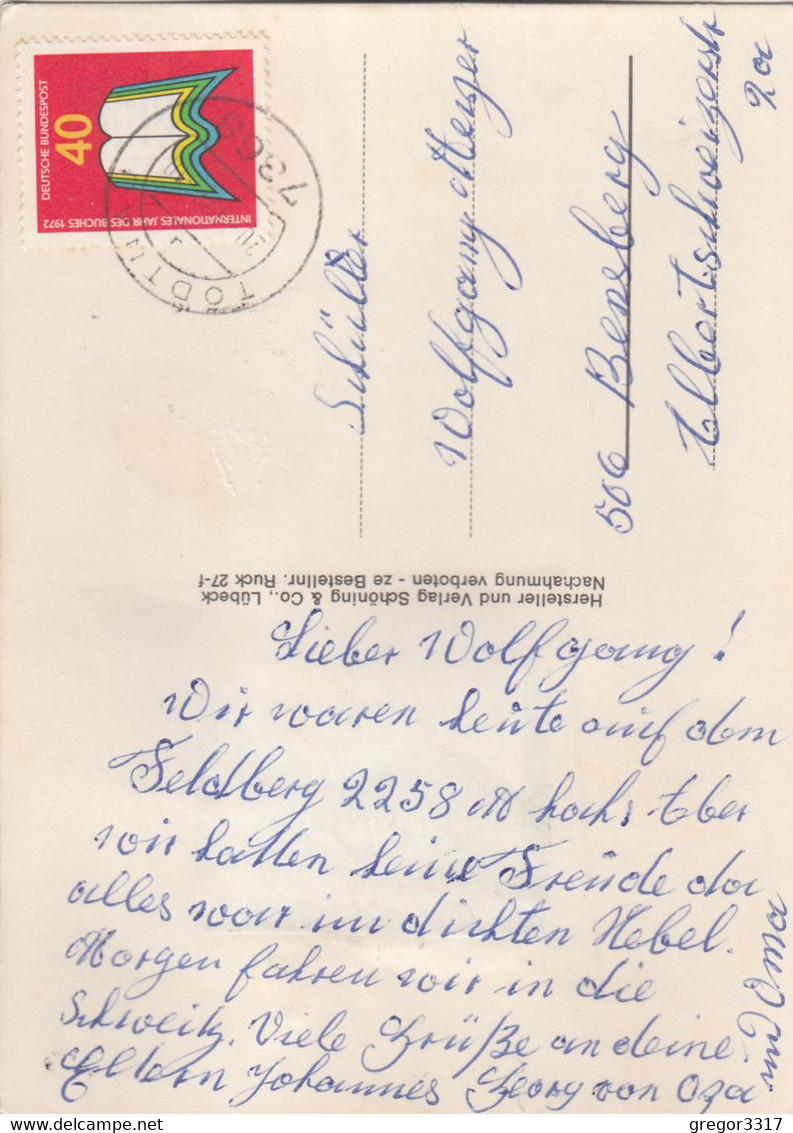 DEUTSCHE BUNDESPOST
40
INTERNATIONALES JAHR DES BUCHES 1972
7868
TODTN
Schüler
Wolfgang Menzer
506 Bensberg
Albertschweizerstr
2a
Hersteller und Verlag Schöning & Co., Lübeck
Nachahmung verboten - ze Bestellnr. Ruck 27-f
Lieber Wolfgang!
Wir waren heute auf dem
Feldberg 2258 M hoch. Aber
wir hatten keine Freude da
alles war im dichten Nebel.
Morgen fahren wir in die
Schweitz. Viele Grüße an deine
Eltern Johannes Georg von Opa
und Oma
gregor3317